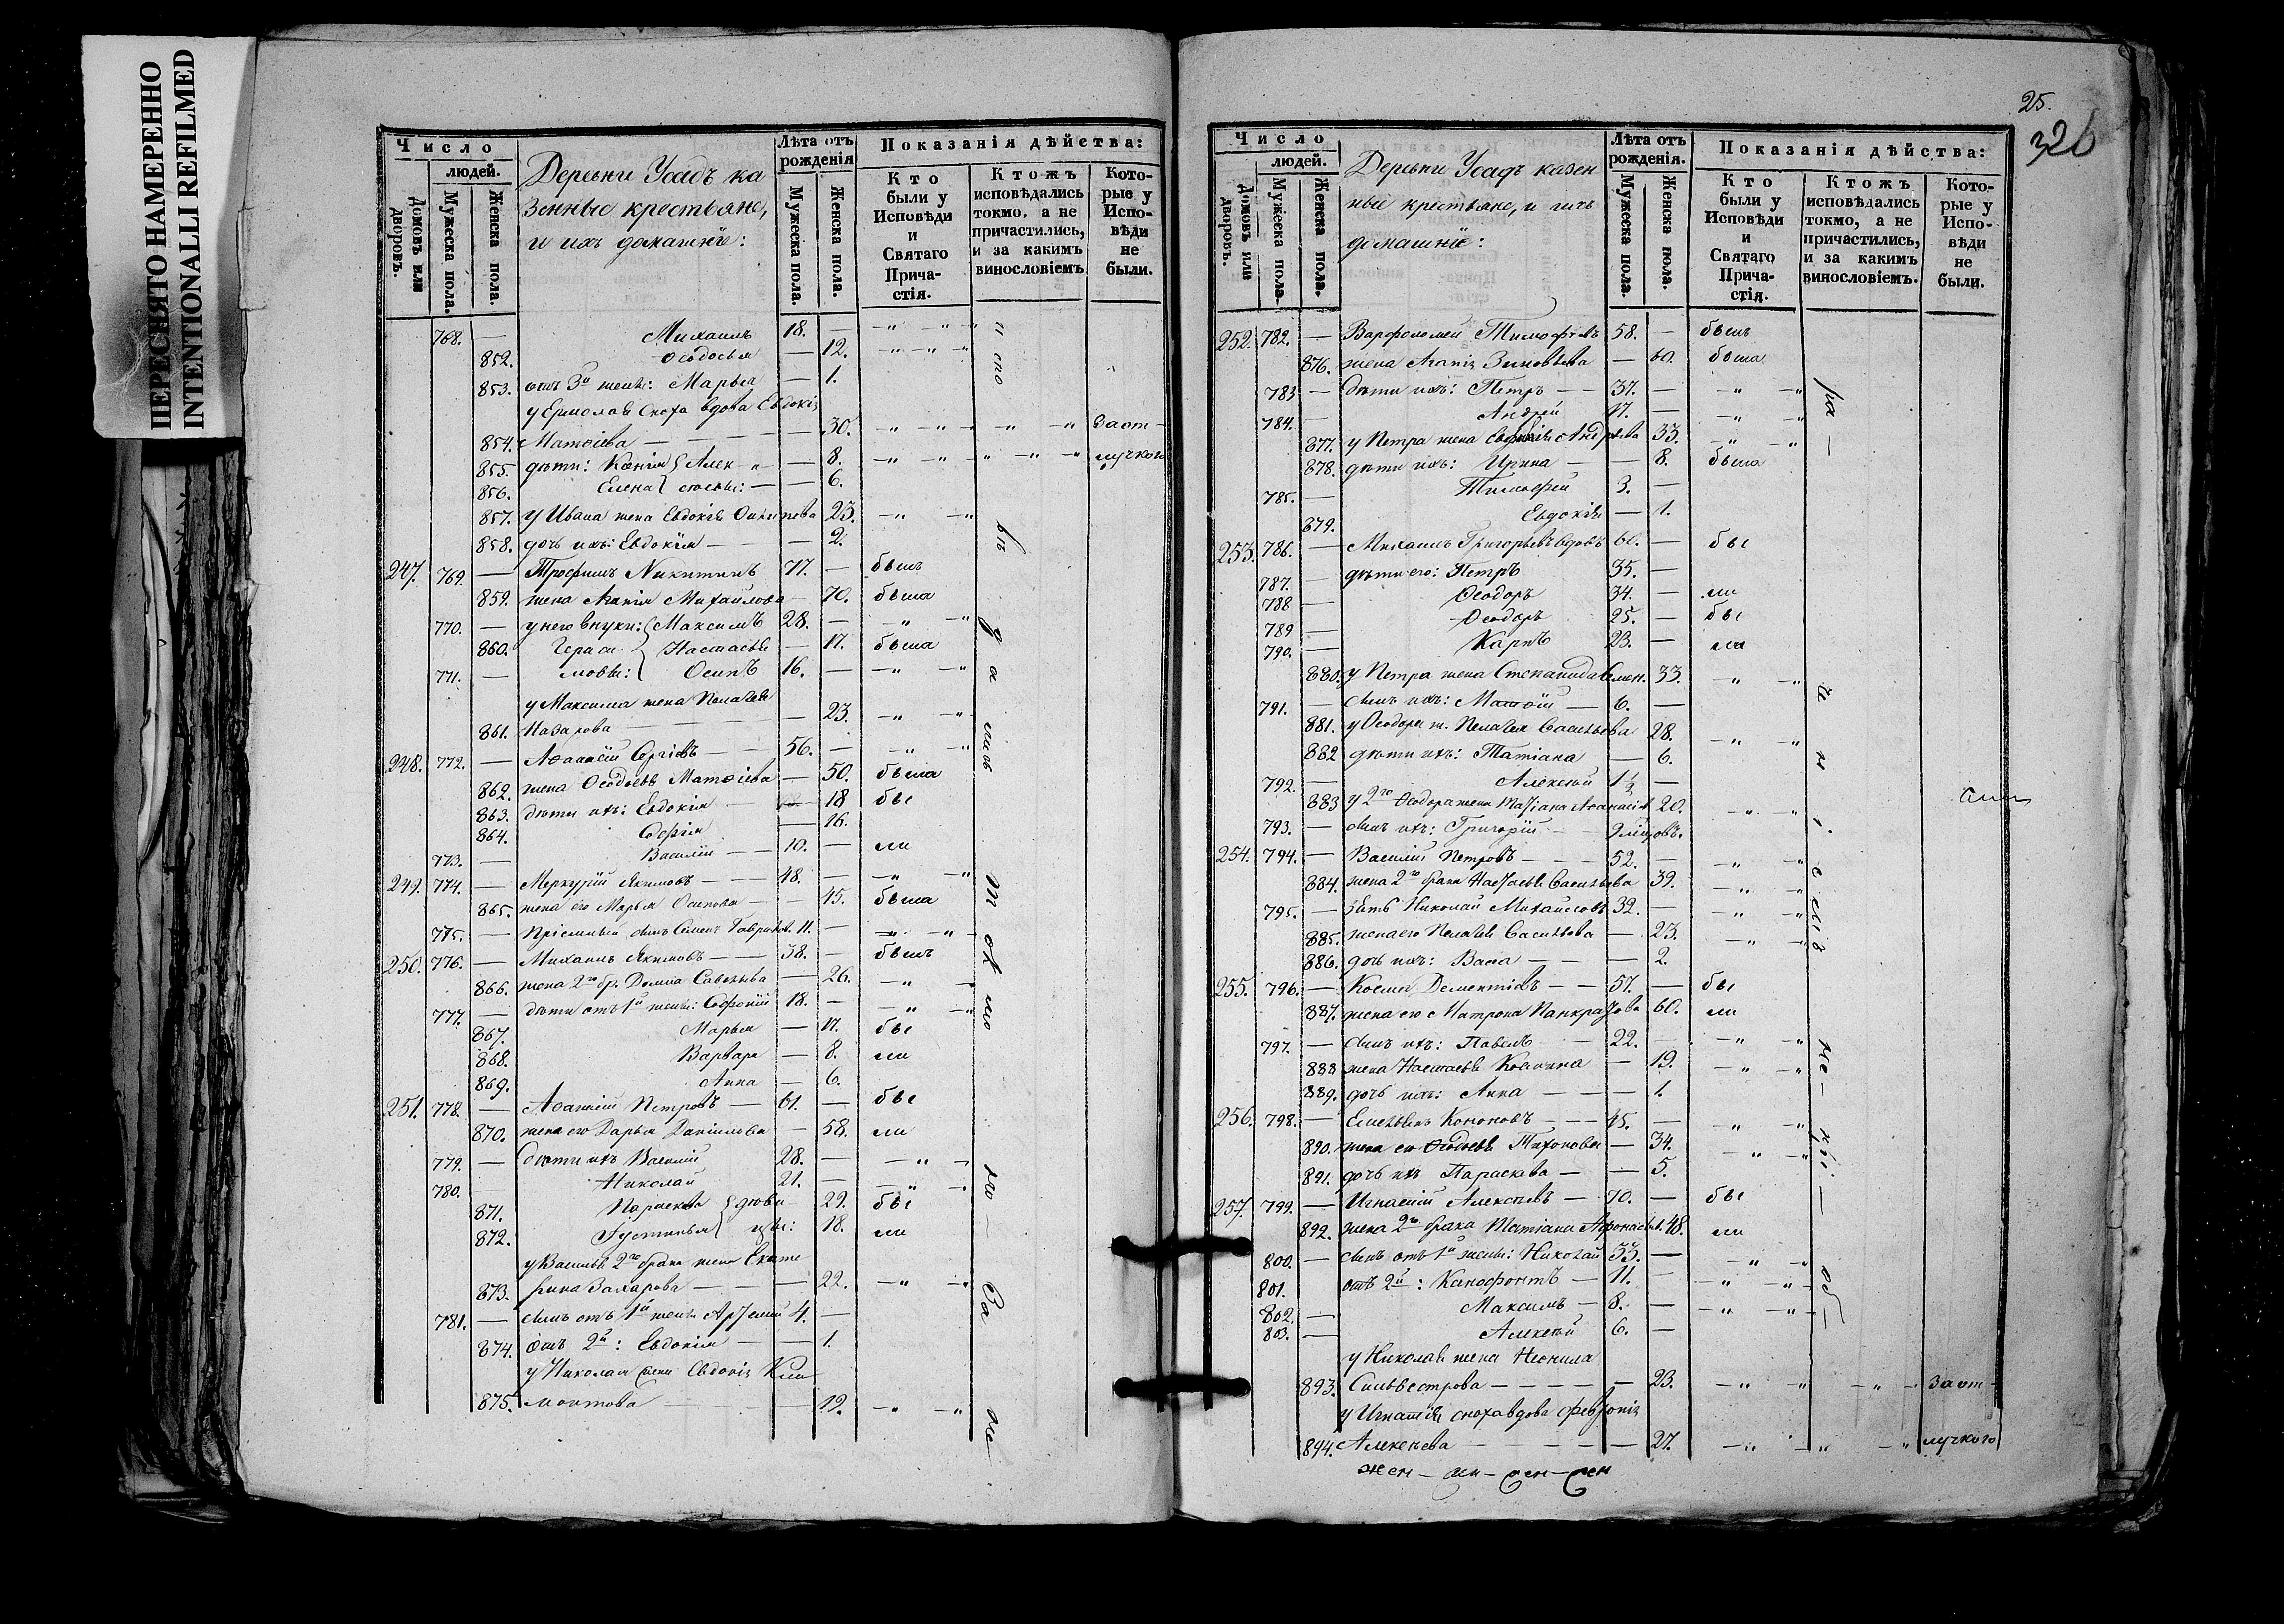 ПЕРЕСНЯТО НАМЕРЕННО
INTENTIONALLI REFILMED
Число
людей.
Домовъ или дворовъ.
Мужеска пола.
Женска пола.
Деревни Усадъ ка
зенные крестьяне,
и ихъ домашніе:
Лѣта отъ рожденія
Мужеска пола.
Женска пола.
Показанія дѣйства:
Кто были у Исповѣди и Святаго Прича-стія.
Ктожъ исповѣдались токмо, а не причастились, и за какимъ винословіемъ
Кото-рые у Испо-вѣди не были.
768. — Михаилъ 18. —
852. Ѳеодосья — 12.
853. отъ 3й жены: Марья — 1.
у Ермолая сноха вдова Евдокія
854. Матѳіева — 30. за от-
855. дѣти: Ксенія Алек- — 8. лучкою
856. Елена сѣевы: — 6.
857. у Ивана жена Евдокія Осипова 23.
858. дочь ихъ: Евдокія — 2.
247. 769. — Трофимъ Никитинъ 77. — былъ
859. жена Агапія Михайлова — 70. была
770. — у него внуки: Максимъ 28. —
860. Гераси- Настасья — 17. была
771. — мовы: Осипъ 16. —
у Максима жена Пелагея
861. Назарова — 23.
248. 772. — Аѳанасій Сергіевъ 56. —
862. жена Ѳеодосья Матѳіева — 50. была
863. дѣти ихъ: Евдокія — 18 бы
864. Софія — 16.
773. — Василій 10. — ли
249. 774. — Меркурій Якимовъ 48. —
865. жена его Марья Осипова — 45. была
775. — Пріемный сынъ Семенъ Гаврилов. 11. —
250. 776. — Михаилъ Якимовъ 38. — былъ
866. жена 2го бр. Домна Савельева — 26.
777. — дѣти отъ 1й жены: Софроній 18. —
867. Марья — 17. бы
868. Варвара — 8. ли
869. Анна — 6.
251. 778. — Аѳанасій Петровъ 61. — бы
870. жена его Дарья Даніилова — 58. ли
779. — дѣти ихъ Василій 28. —
780. — Николай 21. —
871. Параскева дѣви- 29. бы
872. Устинья цы: 18. ли
у Василья 2го брака жена Екате
873. рина Захарова — 22.
781. — сынъ отъ 1й жены Артемій 4. —
874. отъ 2й: Евдокія — 1.
у Николая жена Евдокія Кли
875. монтова — 19.
испо вѣ да лись токмо по за не
25.
326
Число
людей.
Домовъ или дворовъ.
Мужеска пола.
Женска пола.
Деревни Усадъ казен
ные крестьяне, и ихъ
домашніе:
Лѣта отъ рожденія.
Мужеска пола.
Женска пола.
Показанія дѣйства:
Кто были у Исповѣди и Святаго Прича-стія.
Ктожъ исповѣдались токмо, а не причастились, и за какимъ винословіемъ.
Кото-рые у Испо-вѣди не были.
252. 782. — Варфоломей Тимофѣевъ 58. — былъ
876. жена Агапія Зиновьева — 60. была
783 — дѣти ихъ: Петръ 37. —
784. — Андрей 17. —
877. у Петра жена Евфимія Андреева 33.
878. дѣти ихъ: Ирина — 8. была
785. — Тимофей 3. —
879. Евдокія — 1.
253. 786. — Михаилъ Григорьевъ вдовъ 60. — бы
787. — дѣти его: Петръ 35. —
788 — Ѳеодоръ 34. — ли
789 — Ѳеодоръ 25. — бы
790. — Карпъ 23. — ли
880. у Петра жена Степанида Семен. 33.
791. — сынъ ихъ: Матѳій 6. —
881. у Ѳеодора ж. Пелагея Васильева 28.
882 дѣти ихъ: Татіана — 6.
792. — Алексѣй 1½ —
883 у 2го Ѳеодора жена Татіана Аѳанасіев. 20.
793. — сынъ ихъ: Григорій 9 мѣсяцовъ.
254. 794. — Василій Петровъ 52. —
884. жена 2го брака Настасья Васильева 39.
795. — зять Николай Михайловъ 32. —
885. жена его Пелагея Васильева — 23.
886. дочь ихъ: Васса — 2.
255. 796. — Косма Дементіевъ 57. — бы
887. жена его Матрона Панкратова 60. ли
797. — сынъ ихъ: Павелъ 22. —
888 жена Настасья Космина — 19.
889. дочь ихъ: Анна — 1.
256. 798. — Емельянъ Кононовъ 45. —
890. жена его Ѳеодосья Тихонова — 34.
891. дочь ихъ Параскева — 5.
257. 799. — Игнатій Алексѣевъ 70. — бы
892. жена 2го брака Татіана Афонасьев. 48. ли
800. — сынъ отъ 1й жены: Николай 33. —
801. отъ 2й: Ксенофонтъ 11. —
802. — Максимъ 8. —
803. — Алексѣй 6. —
у Николая жена Неонила
893. Сильвестрова — 23. за от
у Игнатія сноха вдова Февронія
894. Алексѣева — 27. лучкою